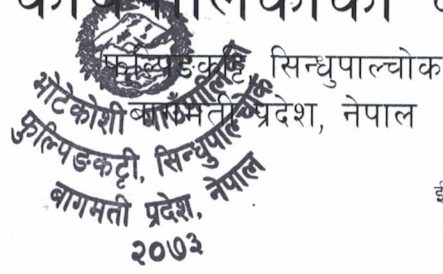 फुल्पिङकट्टी, सिन्धुपाल्चोक
बागमती प्रदेश, नेपाल
भोटेकोशी गाउँपालिका
फुल्पिङकट्टी, सिन्धुपाल्चोक
बागमती प्रदेश, नेपाल
२०७३